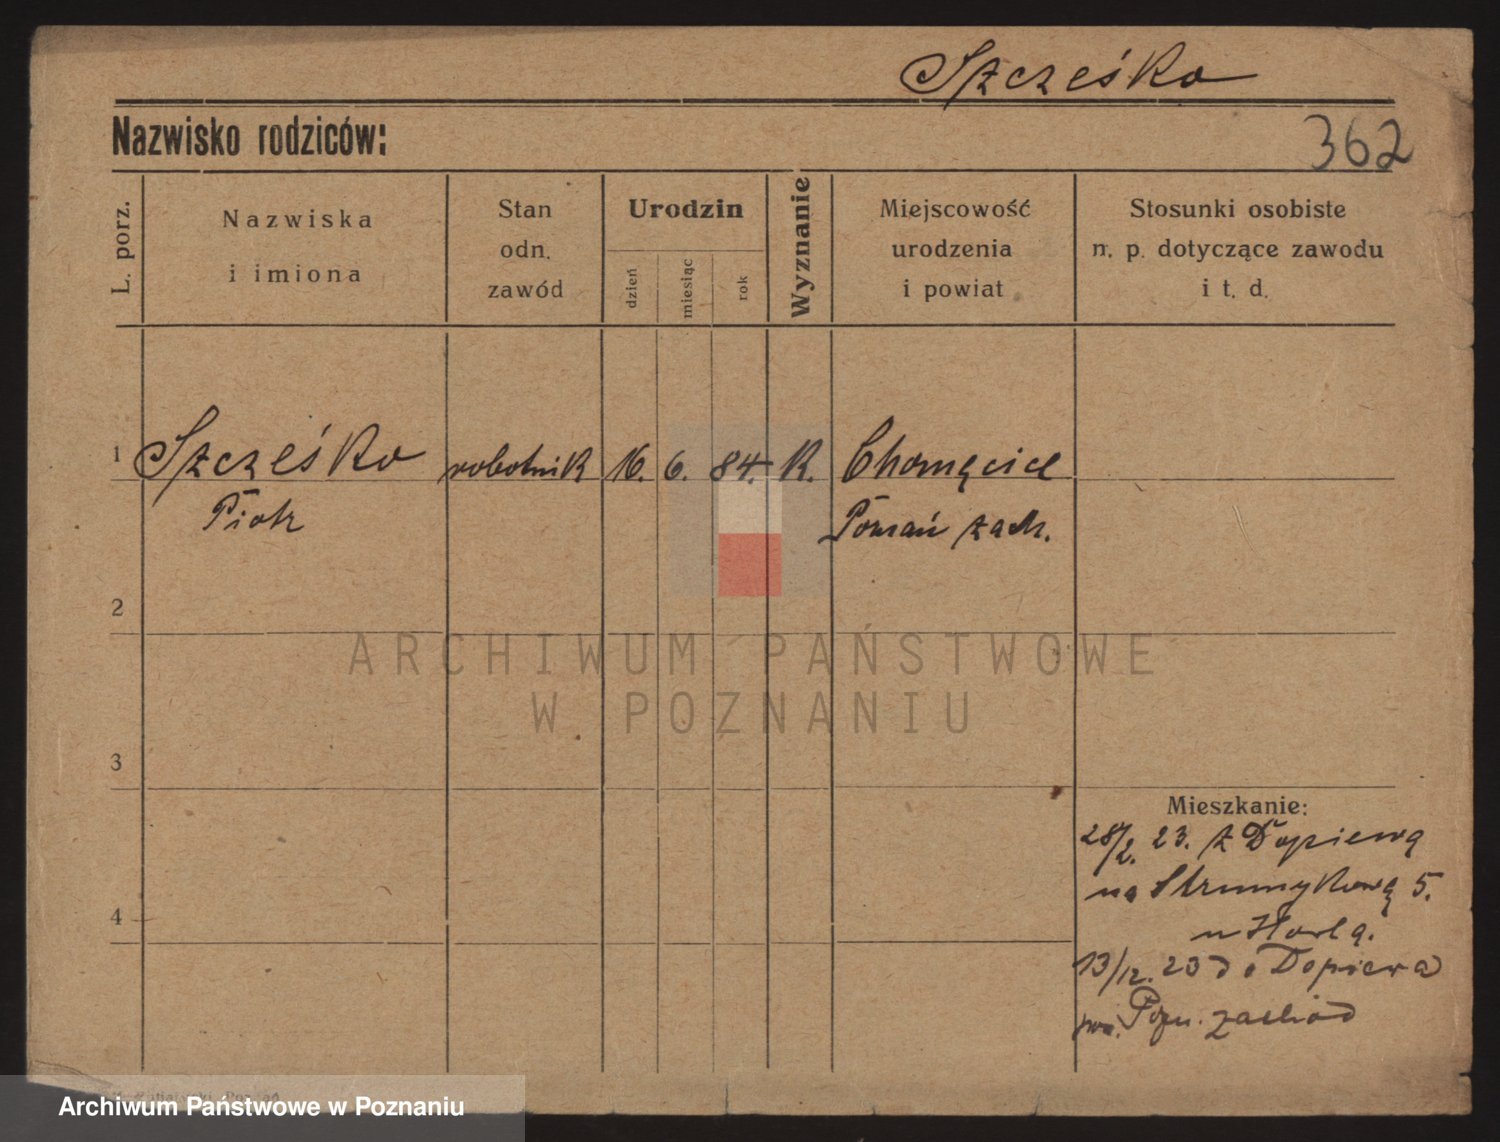 Szcześko
Nazwisko rodziców:
362
L. porz.
Nazwiska
i imiona
Stan
odn.
zawód
Urodzin
dzień
miesiąc
rok
Wyznanie
Miejscowość
urodzenia
i powiat
Stosunki osobiste
n. p. dotyczące zawodu
i t. d.
1 Szcześko robotnik 16. 6. 84. K. Chomęcice
Piotr Poznań zach.
2
ARCHIWUM PAŃSTWOWE
W POZNANIU
3
Mieszkanie:
28/2. 23. z Dopiewa
na Strumykową 5.
13/12. 23 do Dopiewa
pow. Pozn. zachód
4
Archiwum Państwowe w Poznaniu